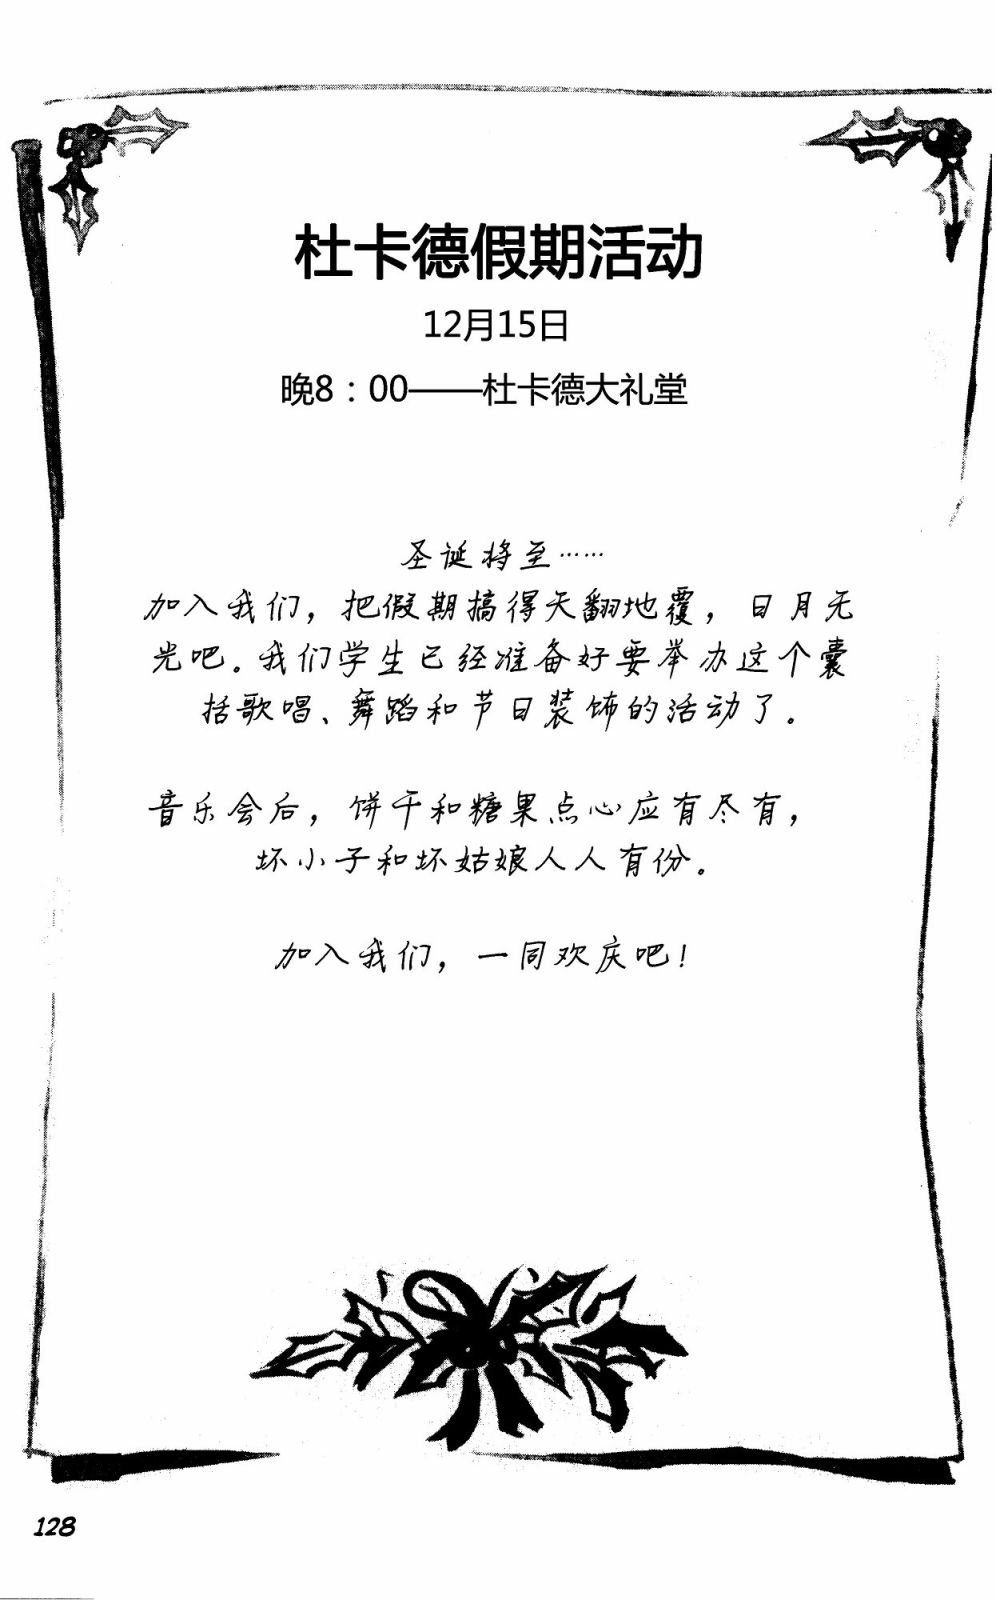 杜卡德假期活动
12月15日
晚8：00——杜卡德大礼堂
圣诞将至……
加入我们，把假期搞得天翻地覆，日月无
光吧。我们学生已经准备好要举办这个囊
括歌唱、舞蹈和节日装饰的活动了。
音乐会后，饼干和糖果点心应有尽有，
坏小子和坏姑娘人人有份。
加入我们，一同欢庆吧！
128